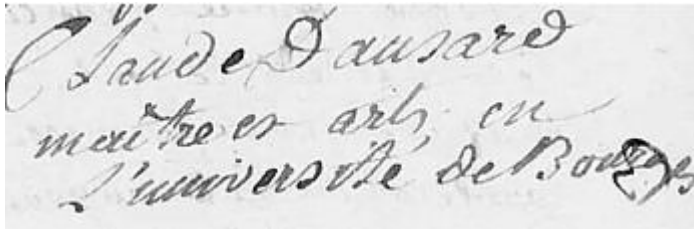 Claude Dansard
maître es arts en
L'université de Bourges